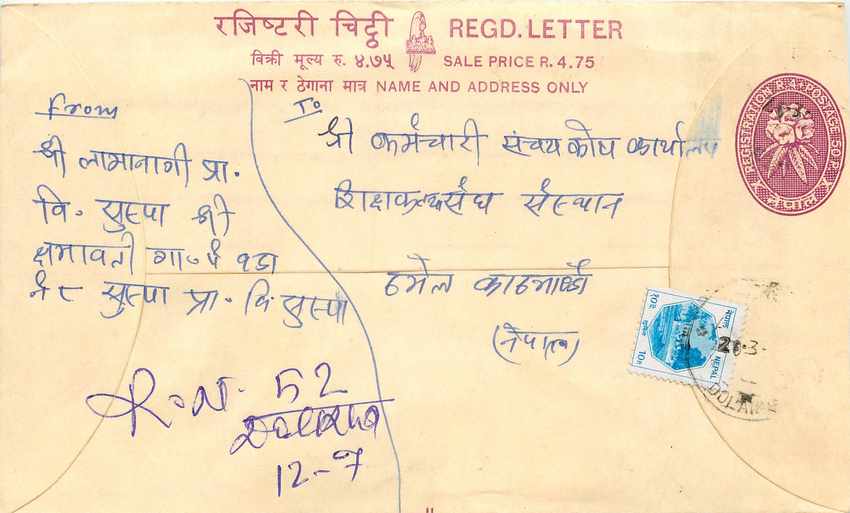 रजिष्टरी चिट्ठी REGD. LETTER
विक्री मूल्य रु. ४.७५ SALE PRICE R. 4.75
नाम र ठेगाना मात्र NAME AND ADDRESS ONLY
REGISTRATION R.4 POSTAGE 50P.
नेपाल
From
श्री लामानागी प्रा.
वि. सुस्पा श्री
क्षमावती गा. पं वडा
नं ८ सुस्पा प्रा. वि. सुस्पा
To
श्री कर्मचारी संचय कोष कार्यालय
संस्थान
ठमेल काठमाण्डौ
(नेपाल)
नेपाल
NEPAL
10P
28.3-
R.N. 52
Dolakha
12-7